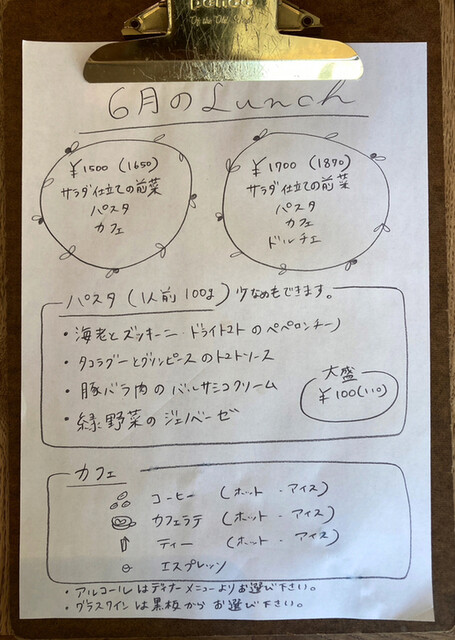 penco
Of the Old School
6月のLunch
¥1500 (1650)
サラダ仕立ての前菜
パスタ
カフェ
¥1700 (1870)
サラダ仕立ての前菜
パスタ
カフェ
ドルチェ
パスタ (1人前100g) 少なめもできます。
・海老とズッキーニ・ドライトマトのペペロンチーノ
・タコラグーとグリンピースのトマトソース
・豚バラ肉のバルサミコクリーム
・緑野菜のジェノベーゼ
大盛
¥100(110)
カフェ
コーヒー (ホット・アイス)
カフェラテ (ホット・アイス)
ティー (ホット・アイス)
エスプレッソ
・アルコールはディナーメニューよりお選び下さい。
・グラスワインは黒板からお選び下さい。